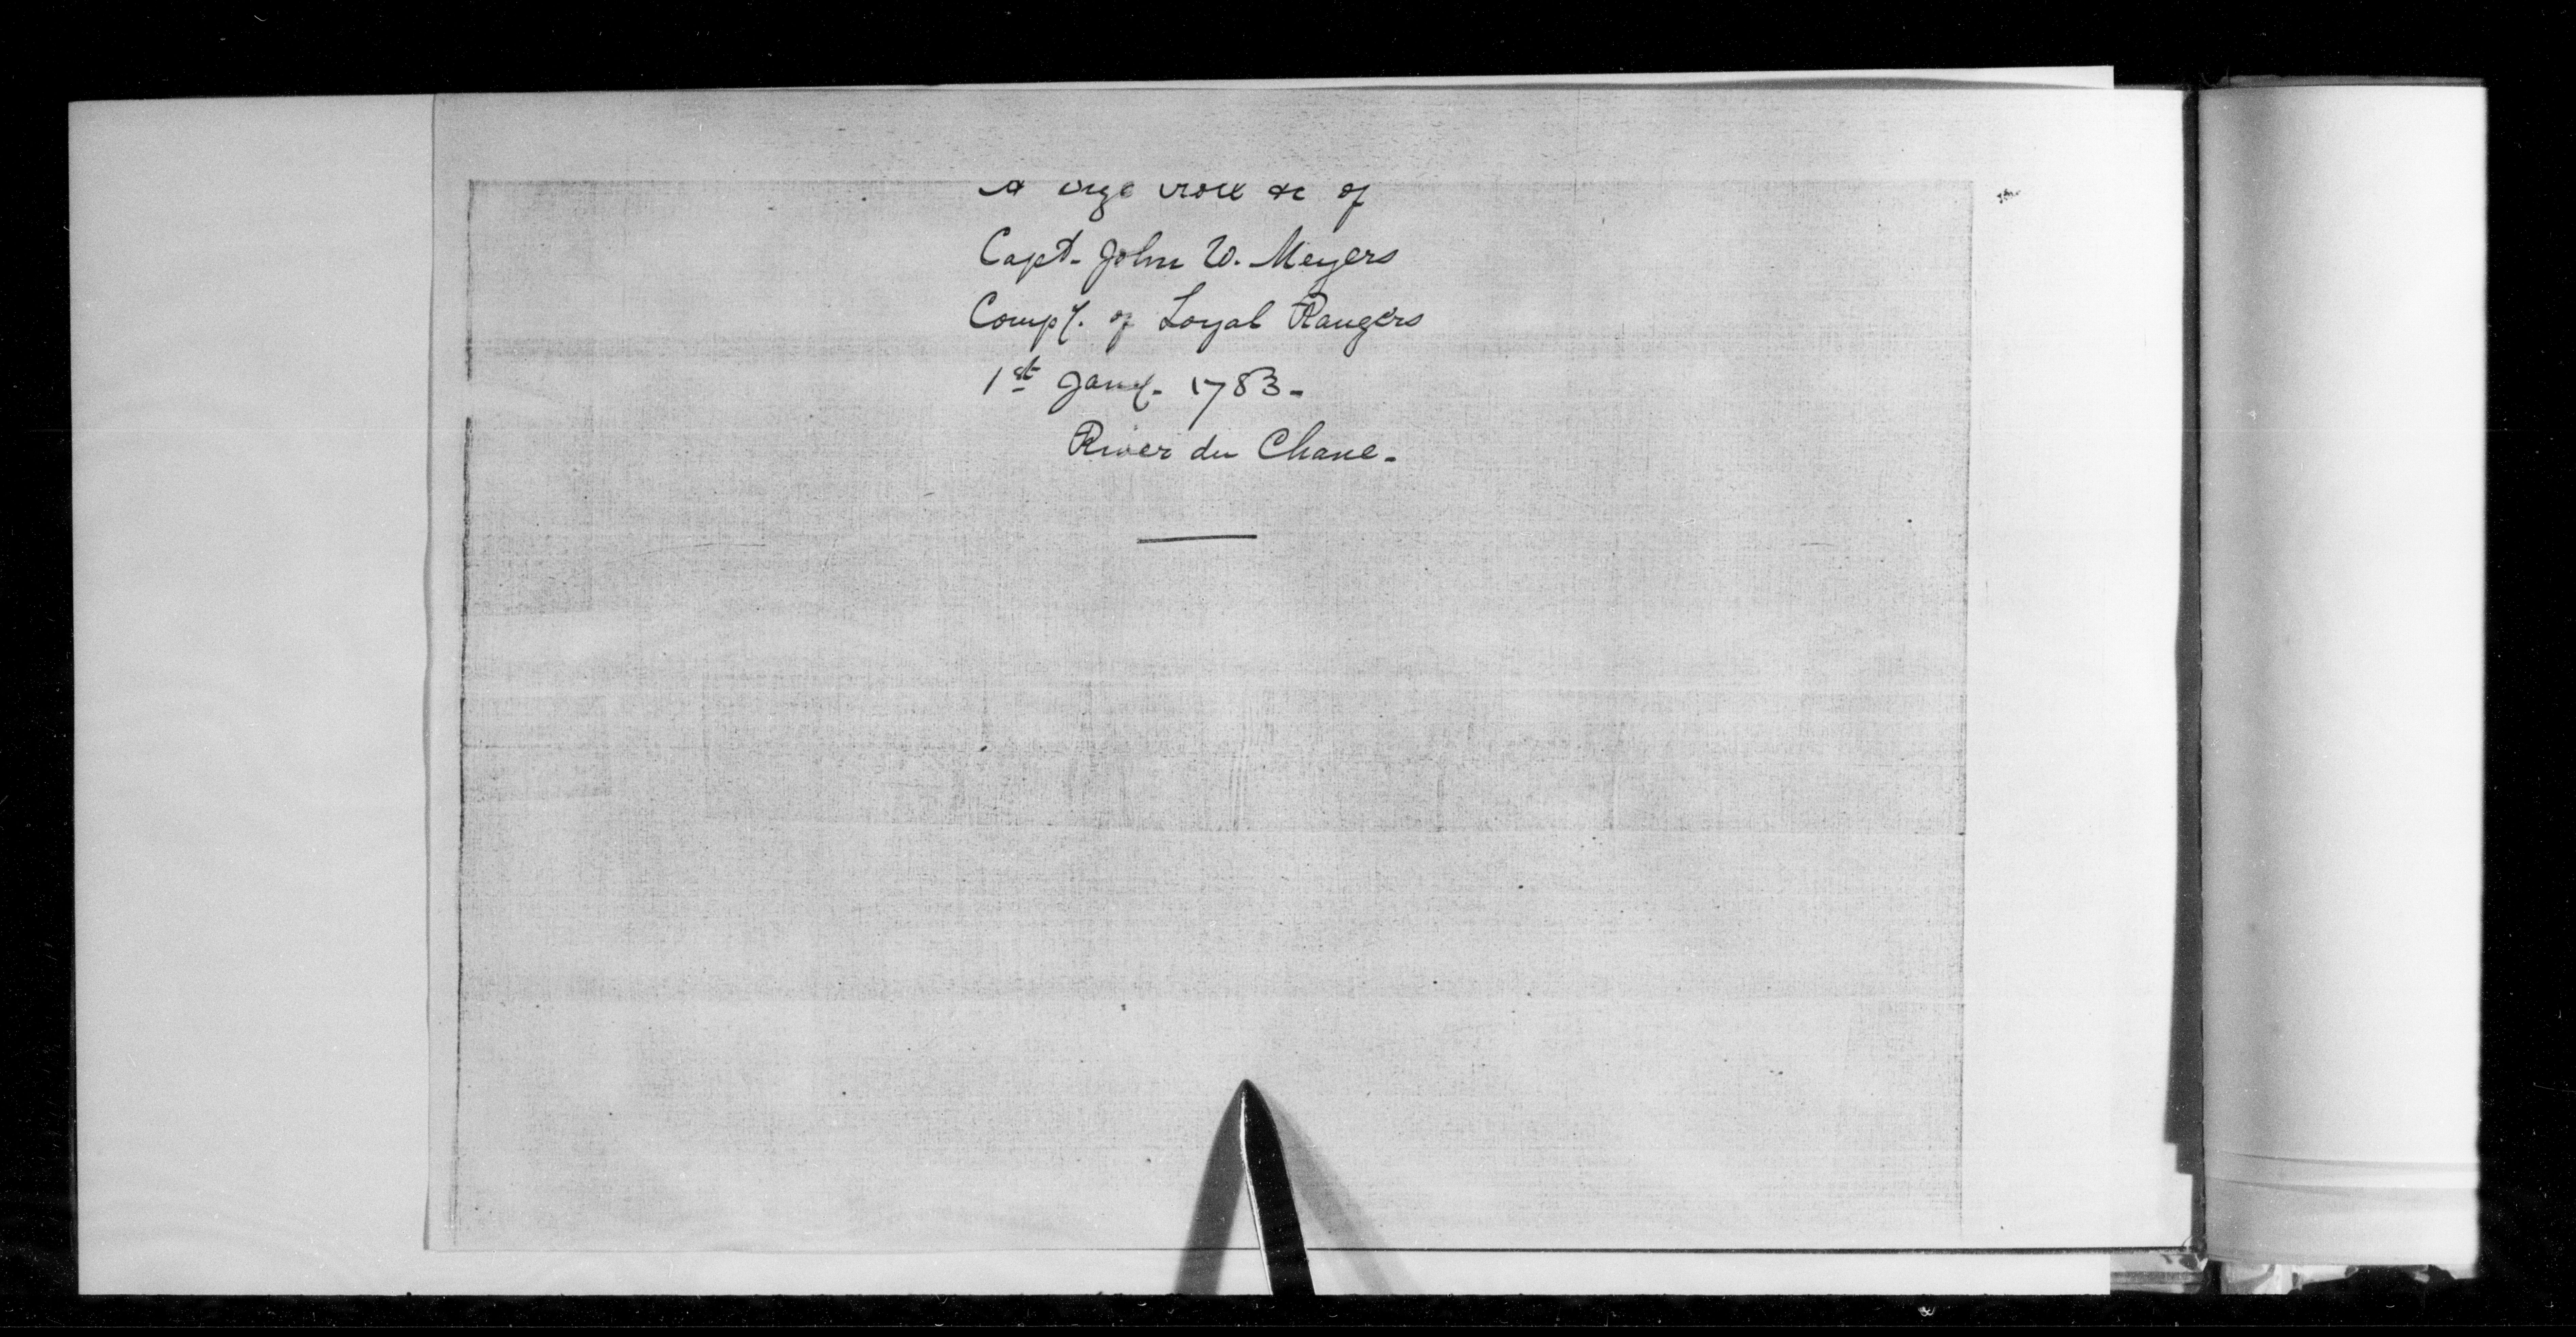 A Size Roll &c of
Capt. John W. Meyers
Compy. of Loyal Rangers
1st Jany. 1783-
River du Chane-